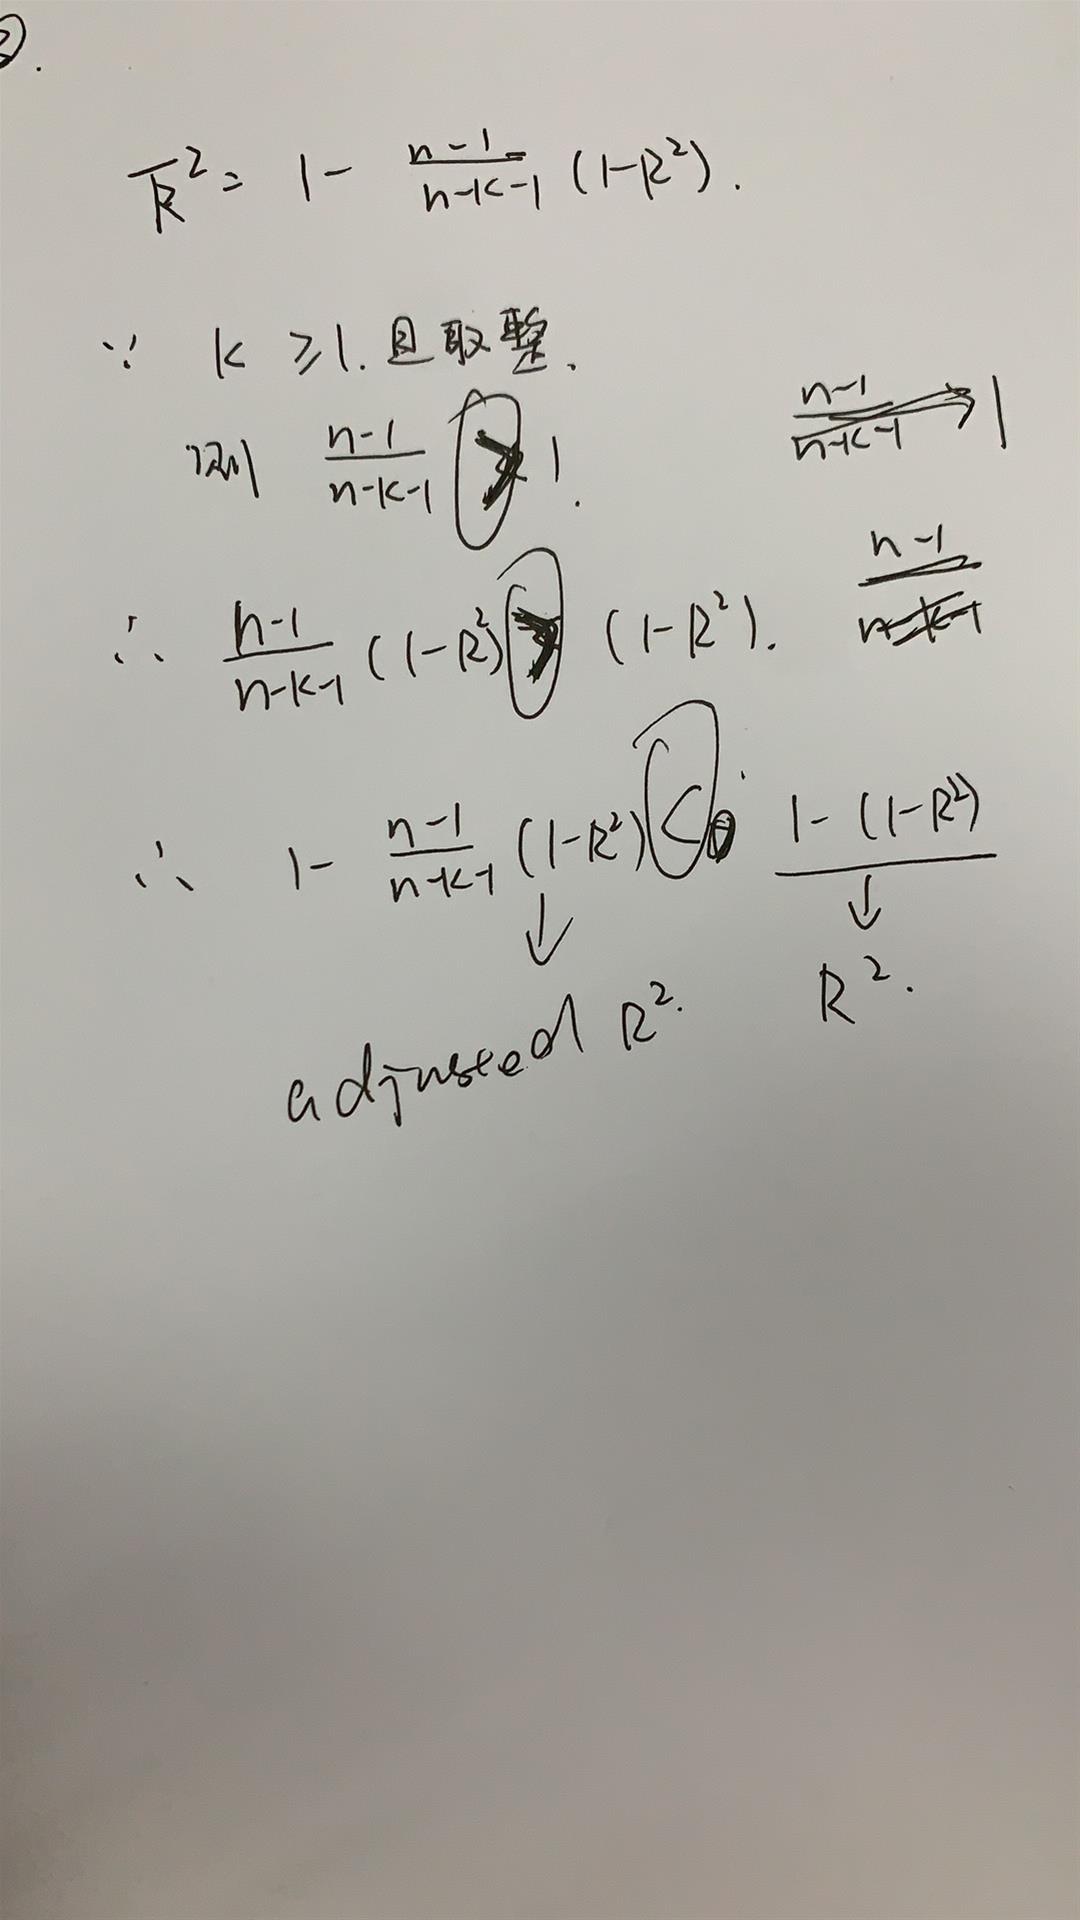 ②.
R̄² = 1 - (n-1)/(n-k-1) (1-R²).
∵ k ≥ 1. 且取整.
则 (n-1)/(n-k-1) > 1.
(n-1)/(n-k-1) → 1
∴ (n-1)/(n-k-1) (1-R²) > (1-R²).
(n-1)/(n-k-1)
∴ 1 - (n-1)/(n-k-1) (1-R²) < 1 - (1-R²)
↓ ↓
adjusted R². R².